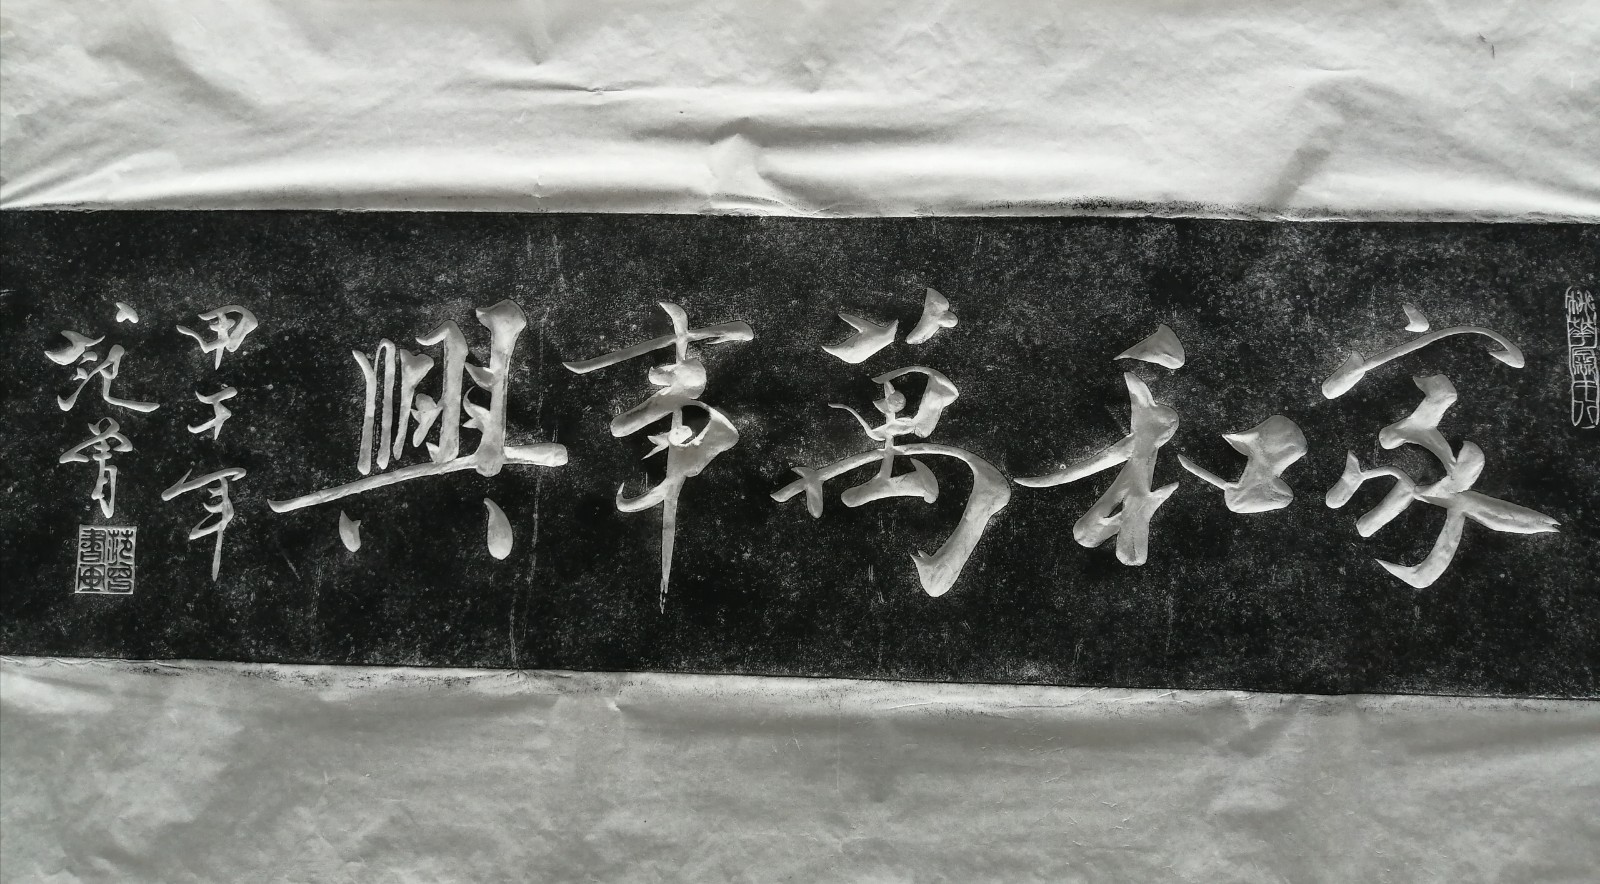 家和萬事興
甲午年
范曾
范曾書画